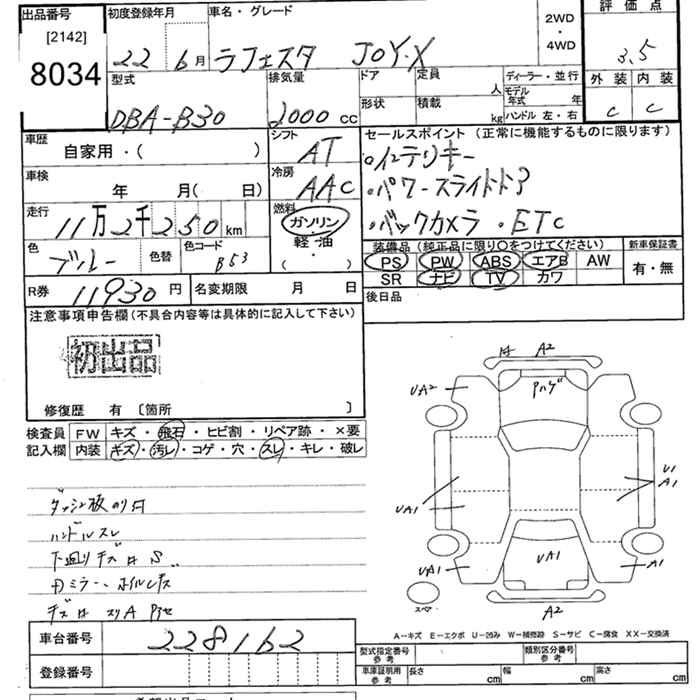 出品番号
[2142]
8034
初度登録年月
22 6月
車名・グレード
ラフェスタ JOY-X
2WD
・
4WD
評価点
3.5
外装 内装
C C
型式
DBA-B30
排気量
2000 CC
ドア 定員 人
形状 積載 kg
ディーラー・並行
モデル年式 年
ハンドル 左・右
車歴
自家用・( )
シフト
AT
車検
年 月( 日)
冷房
AAC
走行
11万2千250km
燃料
ガソリン
・
軽・油
( )
色
ブルー
色替
色コード
B53
R券 11930円
名変期限 月 日
セールスポイント (正常に機能するものに限ります)
・インテリキー
・パワースライドドア
・バックカメラ ・ETC
装備品(純正品に限り○をつけてください)
PS PW ABS エアB AW
SR ナビ TV カワ
新車保証書
有・無
後日品
注意事項申告欄(不具合内容等は具体的に記入して下さい)
初出品
修復歴 有 [箇所 ]
検査員記入欄
FW キズ・飛石・ヒビ割・リペア跡・×要
内装 キズ・汚レ・コゲ・穴・スレ・キレ・破レ
ダッシュ板のり付
ハンドルスレ
下廻りキズ
ミラー、ホイルキズ
A2
UA2
Pハゲ
UA1
U1
A1
UA1
UA1
A1
スペア
A2
A-キズ E-エクボ U-凹み W-補修跡 S-サビ C-腐食 XX-交換済
車台番号 228162
登録番号
型式指定番号
参考
類別区分番号
参考
車庫証明用
参考
長さ cm 幅 cm 高さ cm